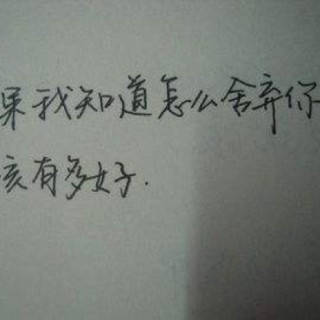 果我知道怎么舍弃你
该有多好.